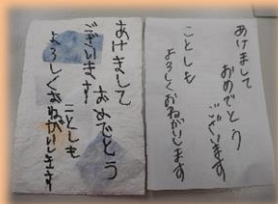 あけまして
おめでとう
ございます
ことしも
よろしくおねがいします
あけまして
おめでとう
ございます
ことしも
よろしくおねがいします